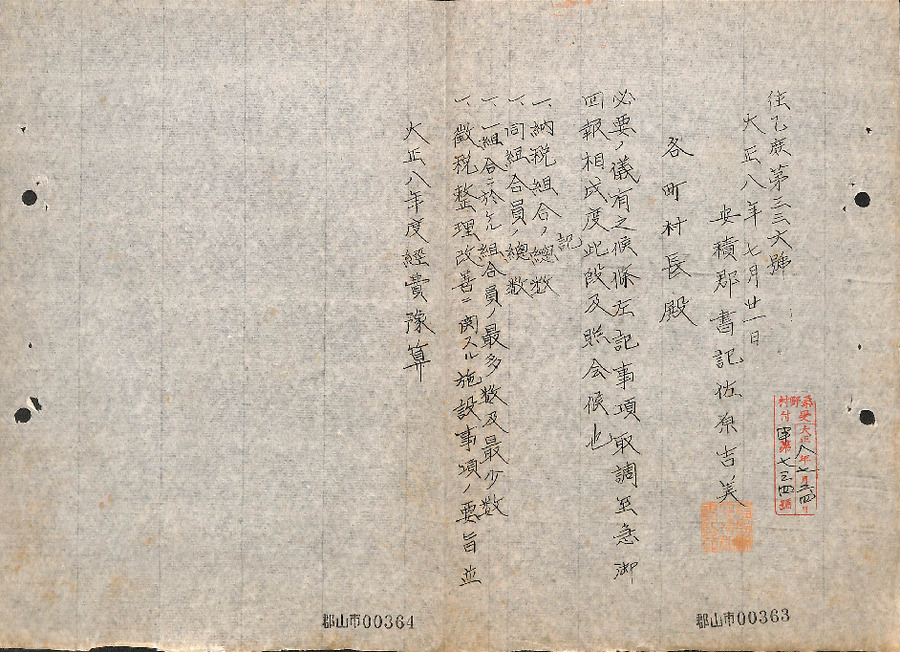 往乙庶第三三六號
大正八年七月廿一日
安積郡書記佐原吉美
各町村長殿
必要ノ儀有之候條左記事項取調至急御
回報相成度此段及照会候也
記
一、納税組合ノ總数
一、同組合員ノ總数
一、一組合ニ於ケル組合員ノ最多数及最少数
一、徴税整理改善ニ関スル施設事項ノ要旨並
大正八年度經費豫算
大正八年七月二四日
村付 第七三四號
郡山市00363
郡山市00364